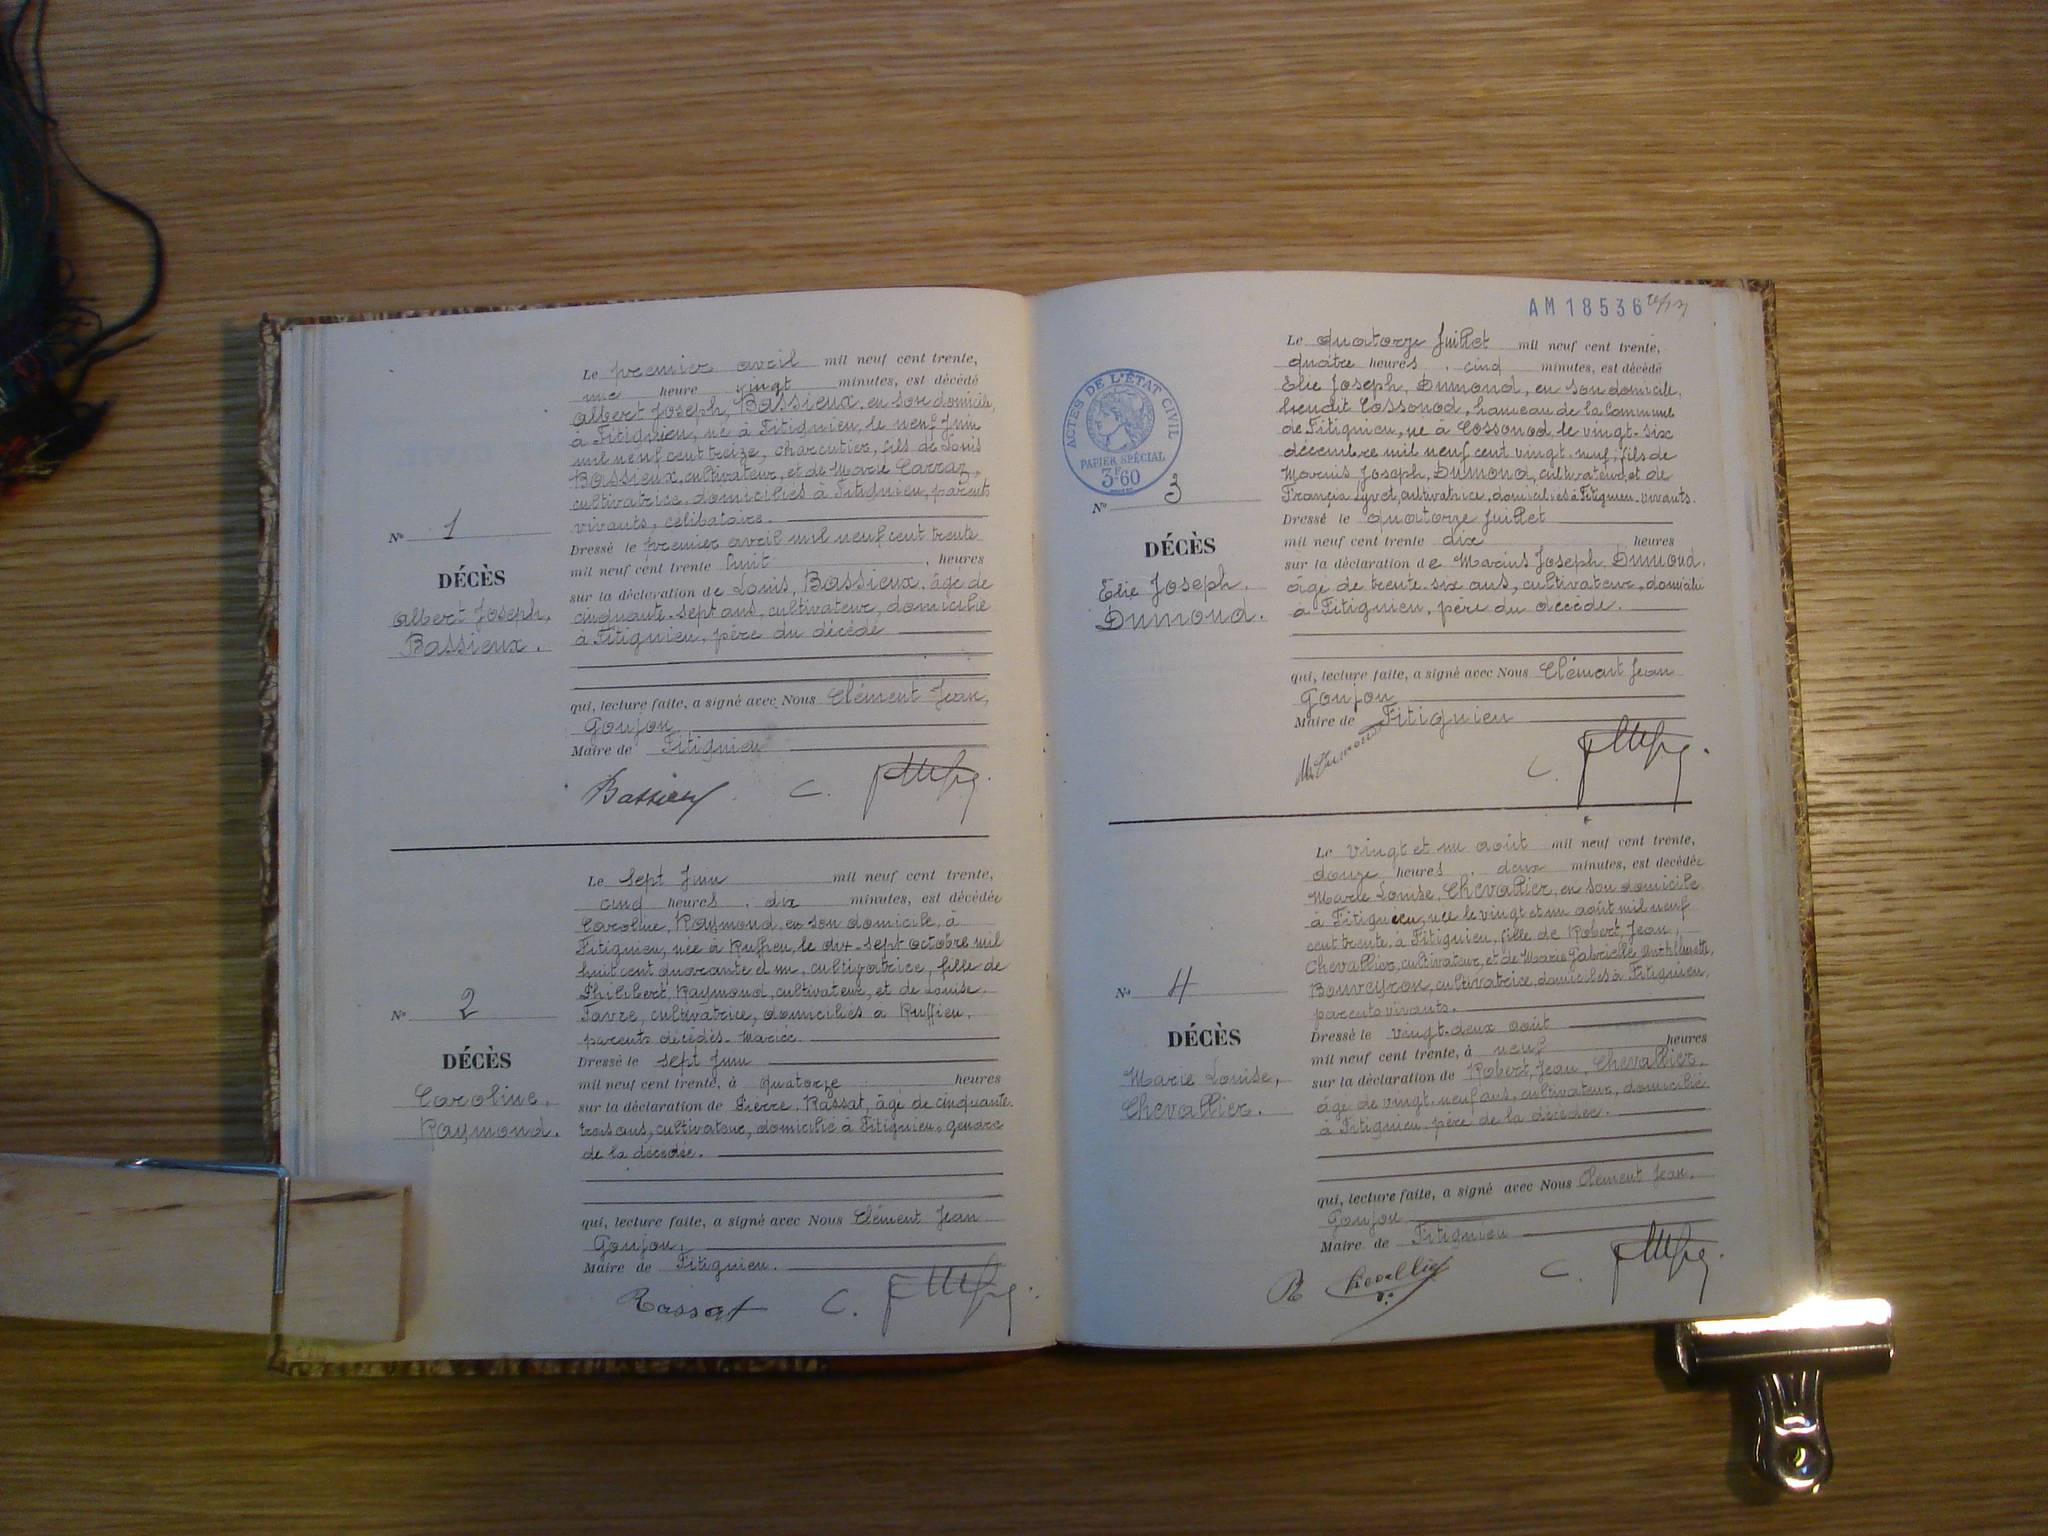 Le premier avril mil neuf cent trente,
une heure vingt minutes, est décédé
Albert Joseph, Bassieux, en son domicile,
à Fitignieu, né à Fitignieu, le neuf Juin
mil neuf cent treize, charcutier, fils de Louis
Bassieux, cultivateur, et de Marie Carraz,
cultivatrice, domiciliés à Fitignieu, parents
vivants, célibataire.
Nº 1
DÉCÈS
Albert Joseph,
Bassieux.
Dressé le premier avril mil neuf cent trente
mil neuf cent trente huit, heures
sur la déclaration de Louis, Bassieux, âgé de
cinquante-sept ans, cultivateur, domicilié
à Fitignieu, père du décédé
qui, lecture faite, a signé avec Nous Clément Jean,
Goujon
Maire de Fitignieu
Bassieux C.
Le sept Juin mil neuf cent trente,
cinq heures, dix minutes, est décédée
Caroline, Raymond, en son domicile, à
Fitignieu, née à Ruffieu, le dix-sept octobre mil
huit cent quarante et un, cultivatrice, fille de
Philibert, Raymond, cultivateur, et de Louise,
Favre, cultivatrice, domiciliés à Ruffieu,
parents décédés. Mariée.
Nº 2
DÉCÈS
Caroline,
Raymond.
Dressé le sept Juin
mil neuf cent trente, à quatorze heures
sur la déclaration de Pierre, Rassat, âgé de cinquante-
trois ans, cultivateur, domicilié à Fitignieu, gendre
de la décédée.
qui, lecture faite, a signé avec Nous Clément Jean
Goujon,
Maire de Fitignieu.
Rassat C.
AM18536
ACTES DE L'ÉTAT CIVIL
PAPIER SPÉCIAL
3F60
Le quatorze Juillet mil neuf cent trente,
quatre heures, cinq minutes, est décédé
Elie Joseph, Dumond, en son domicile,
lieudit Cossonod, hameau de la Commune
de Fitignieu, né à Cossonod le vingt-six
décembre mil neuf cent vingt-neuf, fils de
Marius Joseph, Dumond, cultivateur, et de
cultivatrice, domiciliés à Fitignieu. vivants.
Nº 3
DÉCÈS
Elie Joseph,
Dumond.
Dressé le quatorze Juillet
mil neuf cent trente dix heures
sur la déclaration de Marius Joseph, Dumond,
âgé de trente-six ans, cultivateur, domicilié
à Fitignieu, père du décédé.
qui, lecture faite, a signé avec Nous Clément Jean
Goujon
Maire de Fitignieu
C.
Le vingt et un août mil neuf cent trente,
douze heures, deux minutes, est décédée
Marie Louise, Chevallier, en son domicile
à Fitignieu, née le vingt et un août mil neuf
cent trente à Fitignieu, fille de Robert, Jean,
Chevallier, cultivateur, et de Marie Gabrielle
Bouveyron, cultivatrice, domiciliés à Fitignieu,
parents vivants.
Nº 4
DÉCÈS
Marie Louise,
Chevallier.
Dressé le vingt-deux août
mil neuf cent trente, à neuf heures
sur la déclaration de Robert, Jean, Chevallier,
âgé de vingt-neuf ans, cultivateur, domicilié
à Fitignieu, père de la décédée.
qui, lecture faite, a signé avec Nous Clément Jean,
Goujon
Maire de Fitignieu
R Chevallier C.